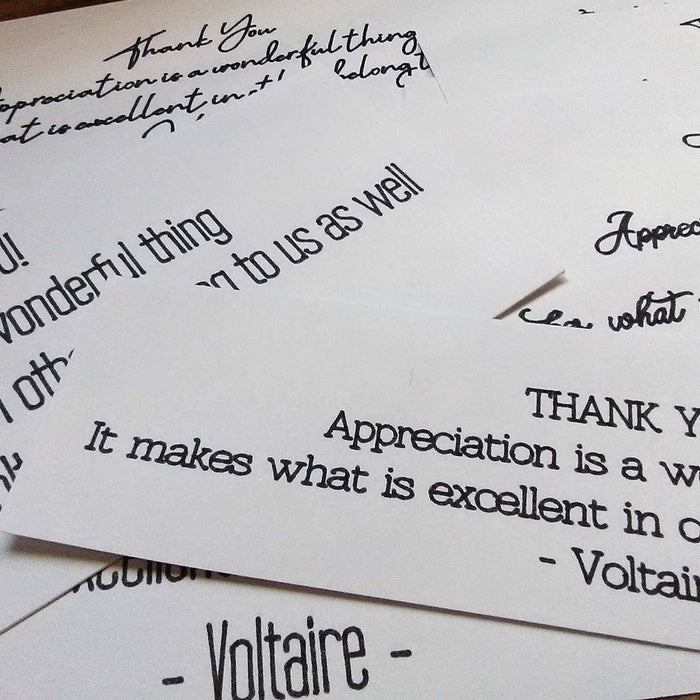 Thank You
Appreciation is a wonderful thing
what is excellent in belong t
wonderful thing
to us as well
Apprec
what
THANK Y
Appreciation is a w
It makes what is excellent in o
- Voltair
- Voltaire -